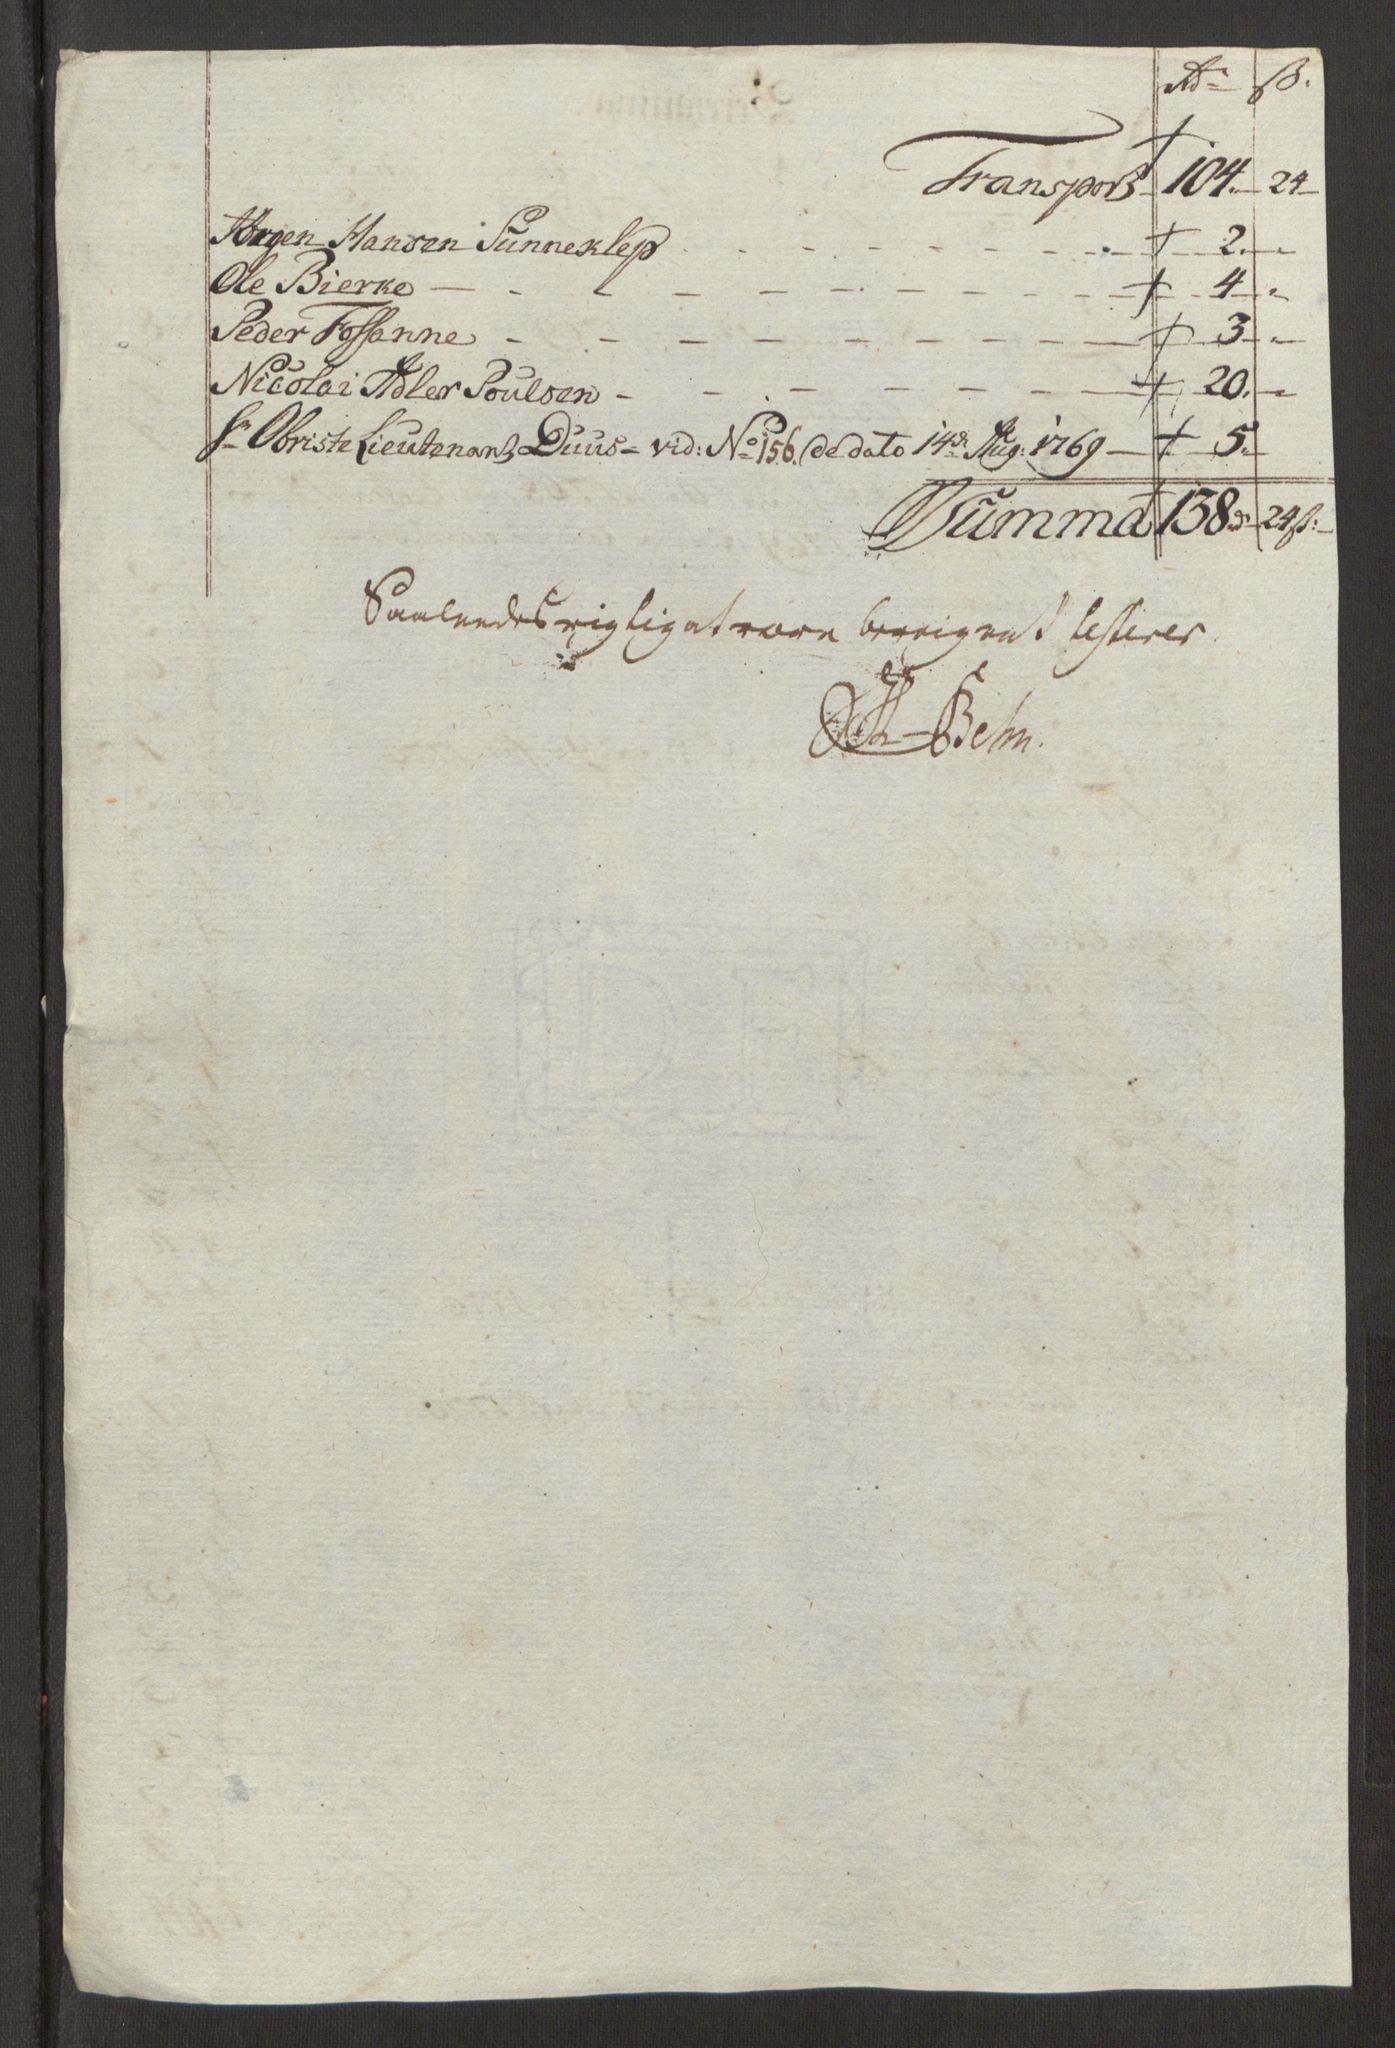 Rdr ß.
Transport 104. 24
Jørgen Hansen Sunneklep 2. "
Ole Bierke 4 "
Peder Fossanne 3 "
Nicolai Adler Poulsen 20. "
Hr Obriste Lieutenant Duus vid: No 156. de dato 14de Aug: 1769 5. "
Summa 138 24 ß:
Saaledes rigtig at være beregnet testerer
Behn.